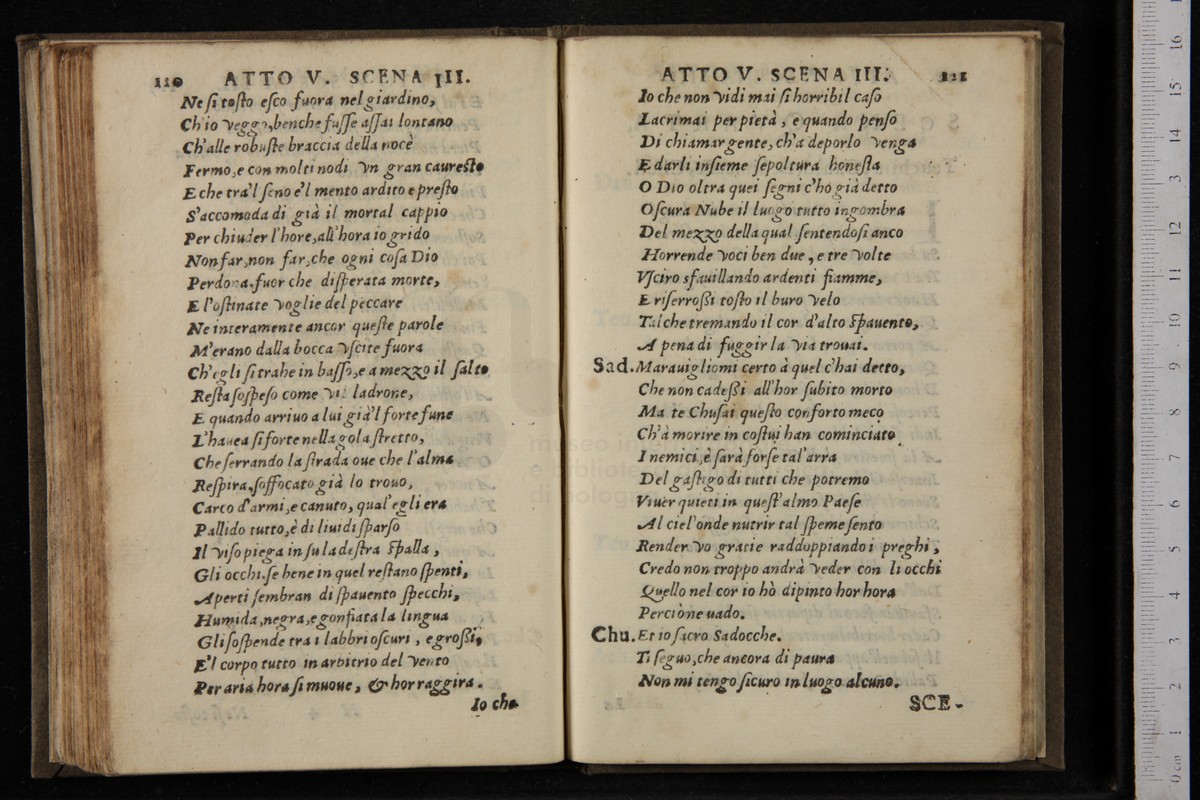 110 ATTO V. SCENA III.
Ne si tosto esco fuora nel giardino,
Ch'io veggo, benche fusse assai lontano
Ch'alle robuste braccia della noce
Fermo, e con molti nodi vn gran cauresto
E che tra'l seno e'l mento ardito e presto
S'accomoda di già il mortal cappio
Per chiuder l'hore, all'hora io grido
Non far, non far, che ogni cosa Dio
Perdona, fuor che disperata morte,
E l'ostinate voglie del peccare
Ne interamente ancor queste parole
M'erano dalla bocca vscite fuora
Ch'egli si trahe in basso, e a mezzo il salto
Resta sospeso come vil ladrone,
E quando arriuo a lui già'l forte fune
L'hauea si forte nella gola stretto,
Che serrando la strada oue che l'alma
Respira, soffocato già lo trouo,
Carco d'armi, e canuto, qual'egli era
Pallido tutto, è di liuidi sparso
Il viso piega in su la destra spalla,
Gli occhi, se bene in quel restano spenti,
Aperti sembran di spauento specchi,
Humida, negra, e gonfiata la lingua
Gli sospende tra i labbri oscuri, e grossi,
E'l corpo tutto in arbitrio del vento
Per aria hora si muoue, & hor raggira.
Io che
ATTO V. SCENA III. 121
Io che non vidi mai si horribil caso
Lacrimai per pietà, e quando penso
Di chiamar gente, ch'a deporlo venga
E darli insieme sepoltura honesta
O Dio oltra quei segni c'hò già detto
Oscura Nube il luogo tutto ingombra
Del mezzo della qual sentendosi anco
Horrende voci ben due, e tre volte
Vsciro sfauillando ardenti fiamme,
E riserrossi tosto il buro velo
Tal che tremando il cor d'alto spauento,
A pena di fuggir la via trouai.
Sad. Marauigliomi certo à quel c'hai detto,
Che non cadessi all'hor subito morto
Ma te Chusai questo conforto meco
Ch'à morire in costui han cominciato
I nemici, è sarà forse tal'arra
Del gastigo di tutti che potremo
Viuer quieti in quest'almo Paese
Al ciel'onde nutrir tal speme sento
Render vo gratie raddoppiando i preghi,
Credo non troppo andrà veder con li occhi
Quello nel cor io hò dipinto hor hora
Perciò ne uado.
Chu. Et io sacro Sadocche.
Ti seguo, che ancora di paura
Non mi tengo sicuro in luogo alcuno.
SCE-
museo in
e bibliote
di bolog
0 cm 1 2 3 4 5 6 7 8 9 10 11 12 13 14 15 16